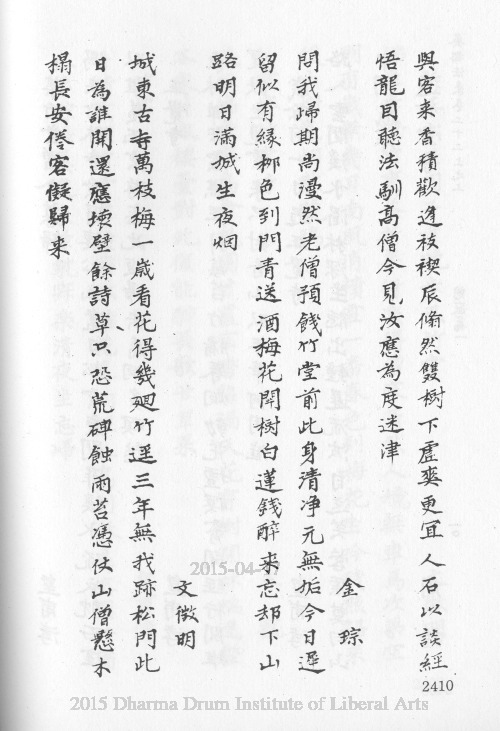 與客来香積歡逢祓禊辰翛然雙樹下虛爽更宜人石以談經
悟龍因聽法馴髙僧今見汝應為度迷津
金琮
問我歸期尚漫然老僧預餞竹堂前此身清净元無垢今日遲
留似有緣柳色到門青送酒梅花開樹白蓮錢醉来忘却下山
路明日滿城生夜烟
文徵明
城東古寺萬枝梅一歲看花得幾廻竹逕三年無我跡松門此
日為誰開還應壞壁餘詩草只恐荒碑蝕雨苔憑仗山僧懸木
榻長安倦客儗歸来
2410
2015-04-
2015 Dharma Drum Institute of Liberal Arts